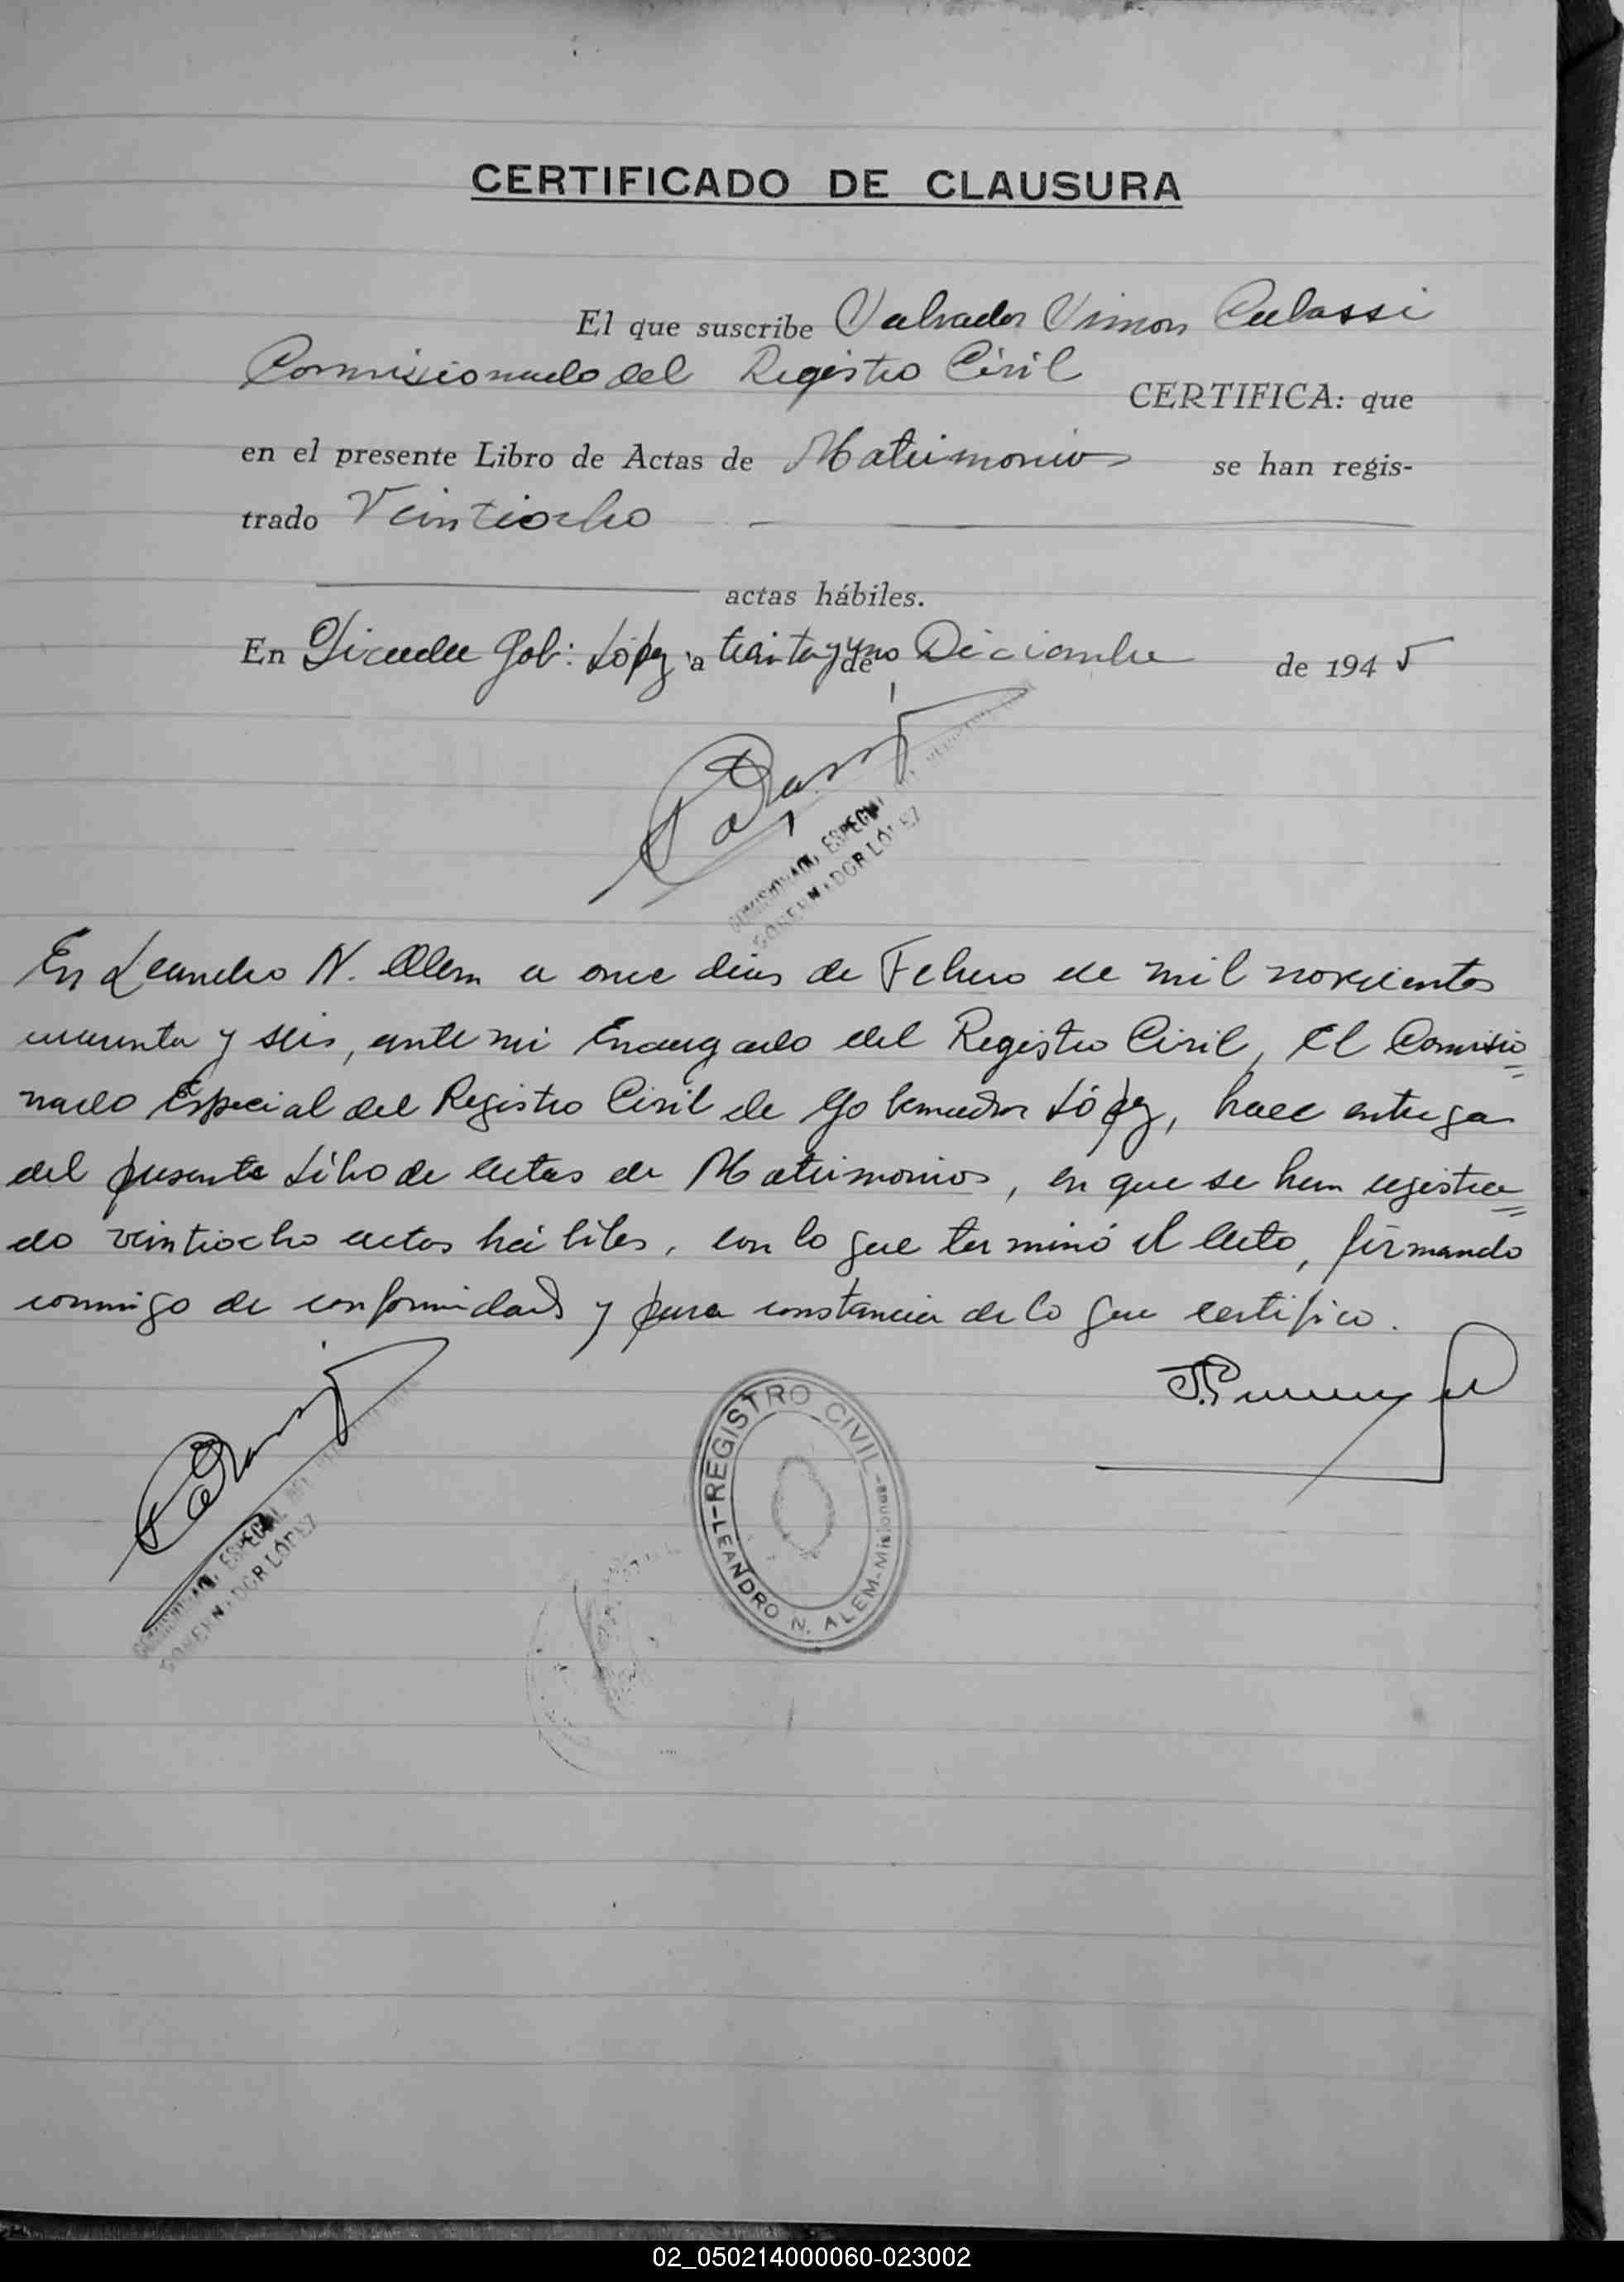 CERTIFICADO DE CLAUSURA
El que suscribe Salvador Simon Calassi
Commisionado del Registro Civil
CERTIFICA: que
en el presente Libro de Actas de Matrimonio se han regis-
trado Veintiocho
actas hábiles.
En Gob: López a treinta y uno de Diciembre de 1945
COMISIONADO ESPECIAL
GOBERNADOR LÓPEZ
En Leandro N. Alem a once dias de Febrero de mil novecientos
cuarenta y seis, ante mi Encargado del Registro Civil, El Comisio
nado Especial del Registro Civil de Gobernador López, hace entrega
del presente Libro de actas de Matrimonios, en que se han registra
do veintiocho actas hábiles, con lo que terminó el acto, firmando
conmigo de conformidad y para constancia de lo que certifico.
COMISIONADO ESPECIAL
GOBERNADOR LÓPEZ
REGISTRO CIVIL
LEANDRO N. ALEM-Misiones-
02_050214000060-023002